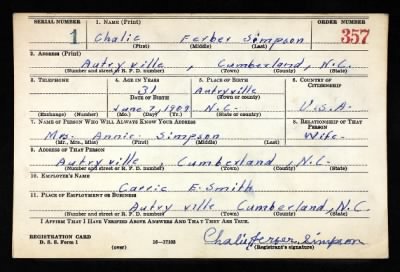 SERIAL NUMBER 1. NAME (Print) ORDER NUMBER
1 Chalie Ferber Simpson 357
(First) (Middle) (Last)
2. ADDRESS (Print)
Autryville, Cumberland, N.C.
(Number and street or R. F. D. number) (Town) (County) (State)
3. TELEPHONE 4. AGE IN YEARS 5. PLACE OF BIRTH 6. COUNTRY OF CITIZENSHIP
31 Autryville
DATE OF BIRTH (Town or county)
June 7, 1909 N.C. U.S.A.
(Exchange) (Number) (Mo.) (Day) (Yr.) (State or country)
7. NAME OF PERSON WHO WILL ALWAYS KNOW YOUR ADDRESS 8. RELATIONSHIP OF THAT PERSON
Mrs. Annie Simpson Wife
(Mr., Mrs., Miss) (First) (Middle) (Last)
9. ADDRESS OF THAT PERSON
Autryville, Cumberland, N.C.
(Number and street or R. F. D. number) (Town) (County) (State)
10. EMPLOYER'S NAME
Carrie E. Smith
11. PLACE OF EMPLOYMENT OR BUSINESS
Autryville Cumberland, N.C.
(Number and street or R. F. D. number) (Town) (County) (State)
I AFFIRM THAT I HAVE VERIFIED ABOVE ANSWERS AND THAT THEY ARE TRUE.
REGISTRATION CARD
D. S. S. Form 1 (over) 16—17105 Chalie Ferber Simpson
(Registrant's signature)